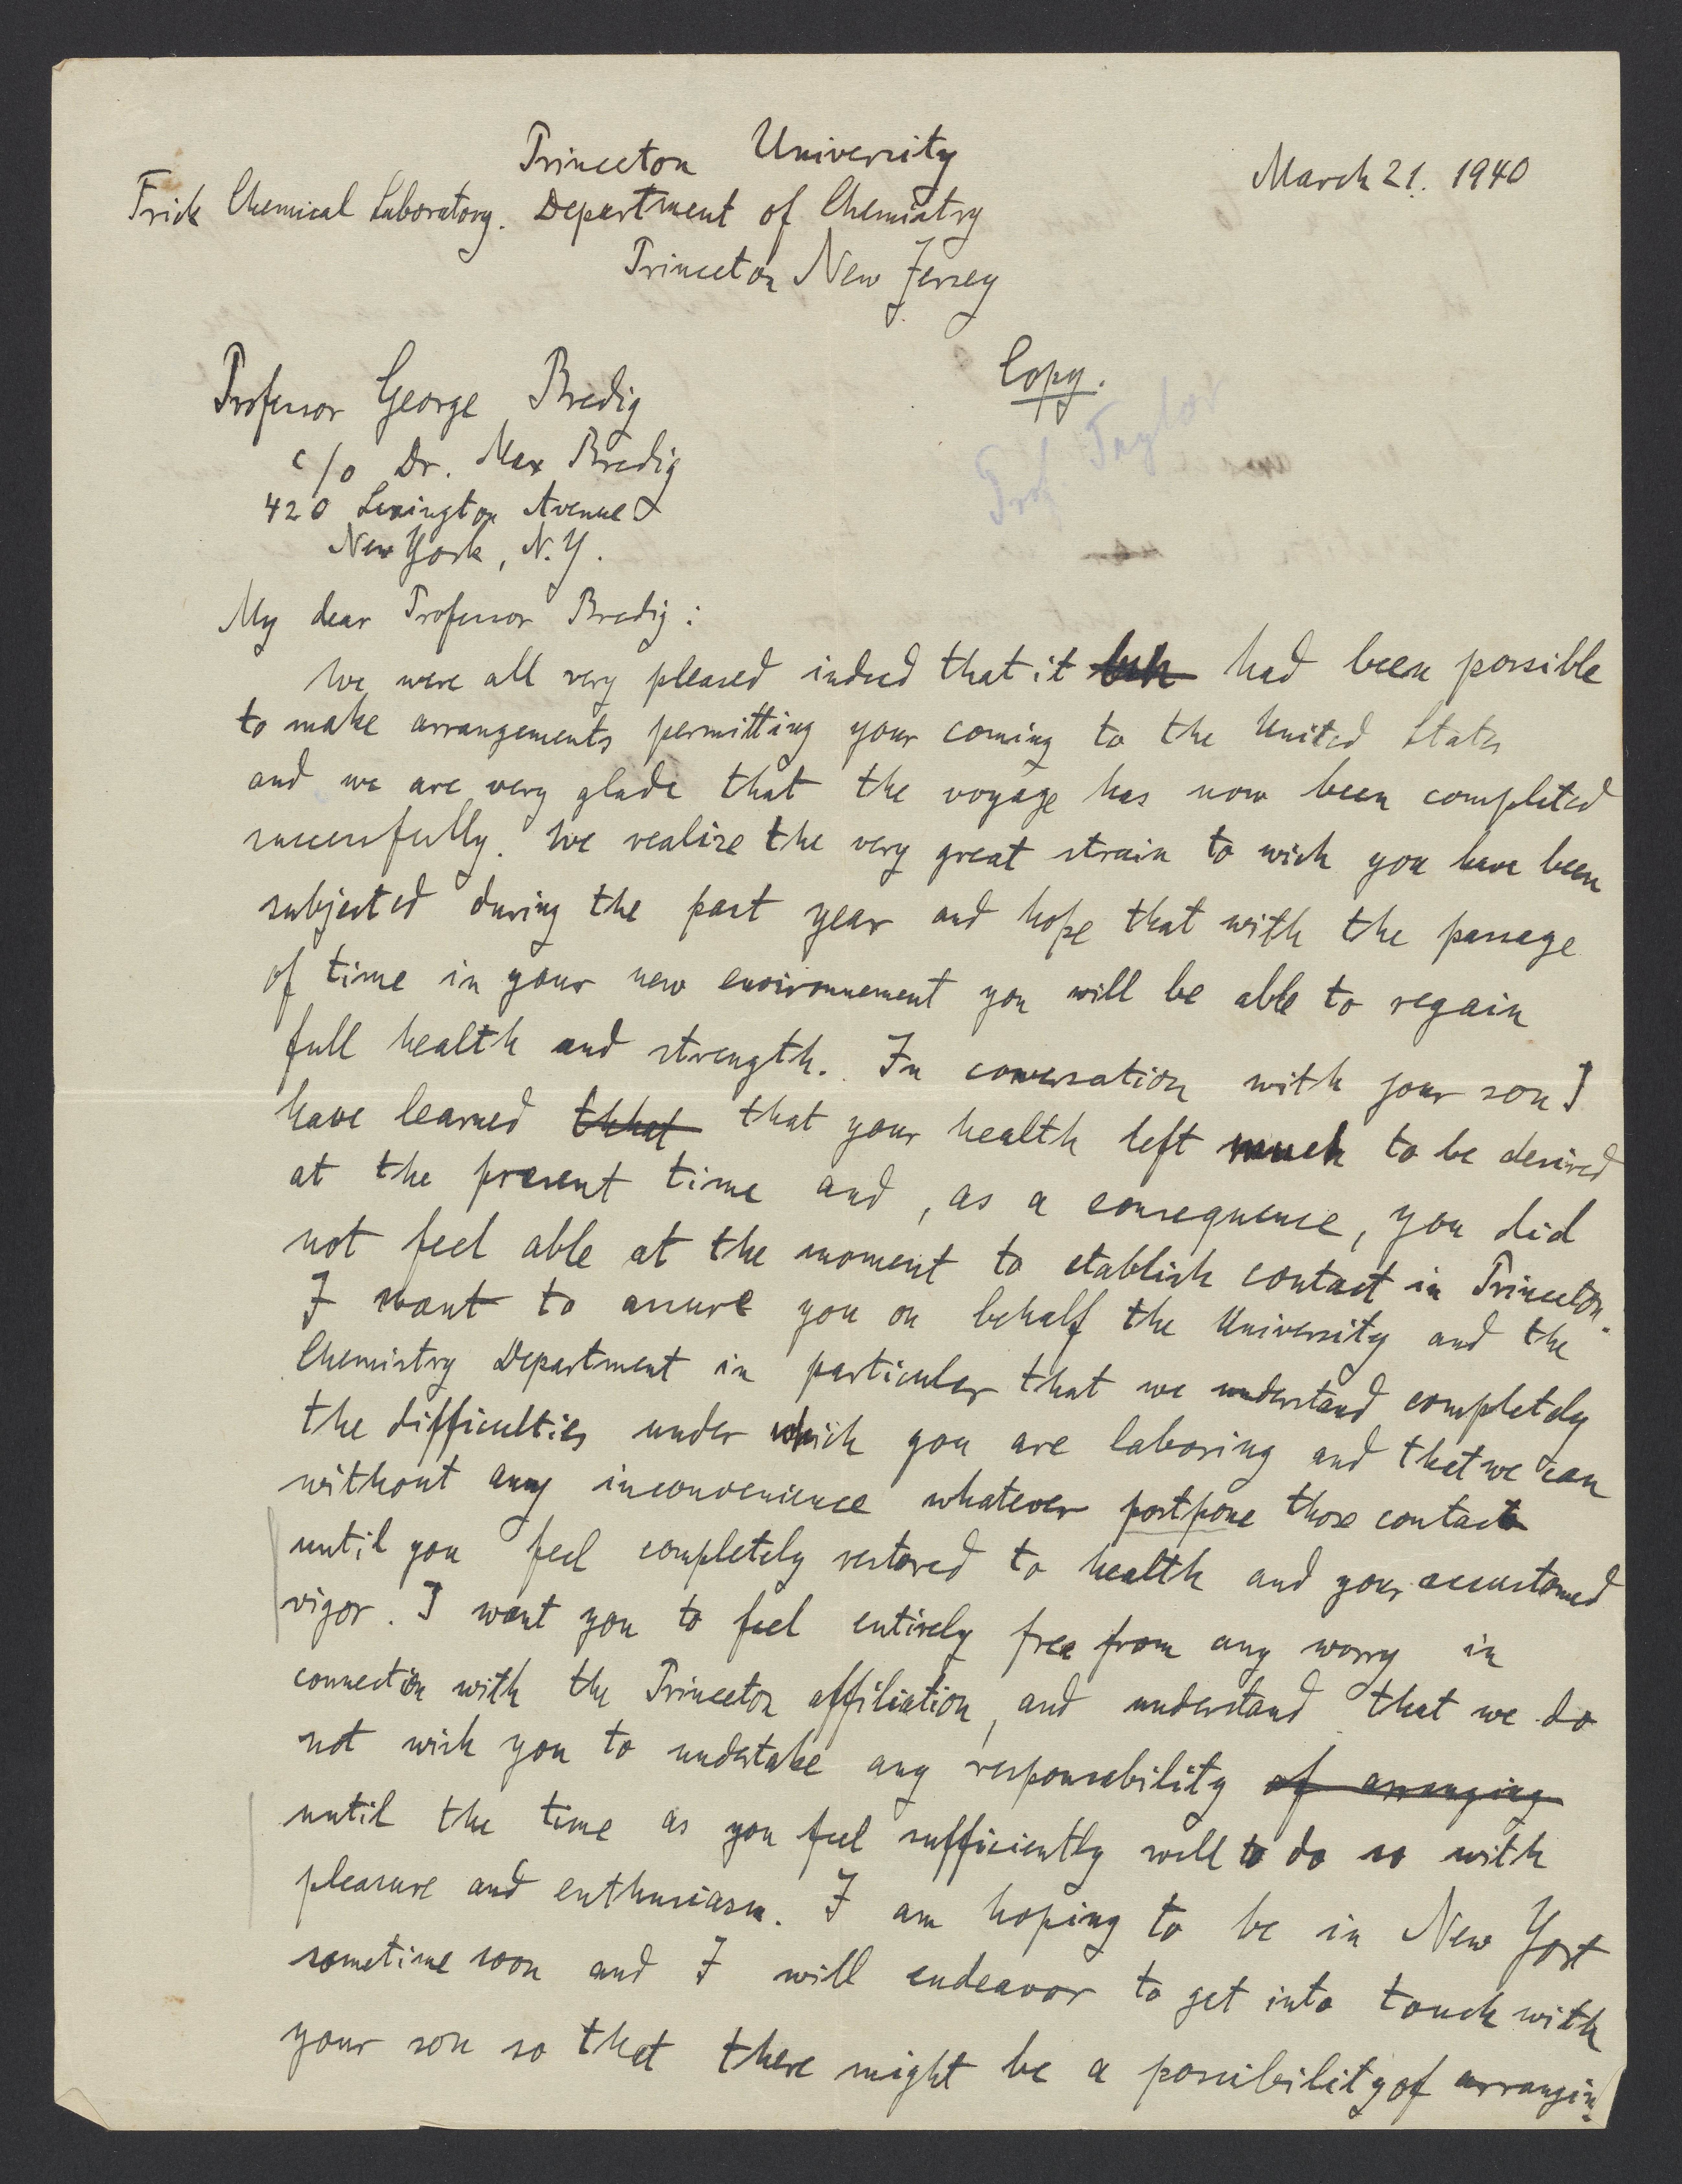 Princeton University
March 21. 1940
Frick Chemical Laboratory. Department of Chemistry
Princeton New Jersey
Copy.
Prof. Taylor
Professor George Bredig
c/o Dr. Max Bredig
420 Lexington Avenue
New York, N.Y.
My dear Professor Bredig:
We were all very pleased indeed that it had been possible
to make arrangements permitting your coming to the United States
and we are very glade that the voyage has now been completed
successfully. We realize the very great strain to wich you have been
subjected during the past year and hope that with the passage
of time in your new environnement you will be able to regain
full health and strength. In conversation with your son I
have learned that that your health left much to be desired
at the present time and, as a consequence, you did
not feel able at the moment to etablish contact in Princeton.
I want to assure you on behalf the University and the
Chemistry Department in particular that we understand completely
the difficulties under which you are laboring and that we can
without any inconvenience whatever postpone those contact
until you feel completely restored to health and your accustomed
vigor. I want you to feel entirely free from any worry in
connection with the Princeton affiliation, and understand that we do
not wish you to undertake any responsability of arranging
until the time as you feel sufficiently well to do so with
pleasure and enthusiasm. I am hoping to be in New York
sometime soon and I will endeavor to get into touch with
your son so that there might be a possibility of arranging